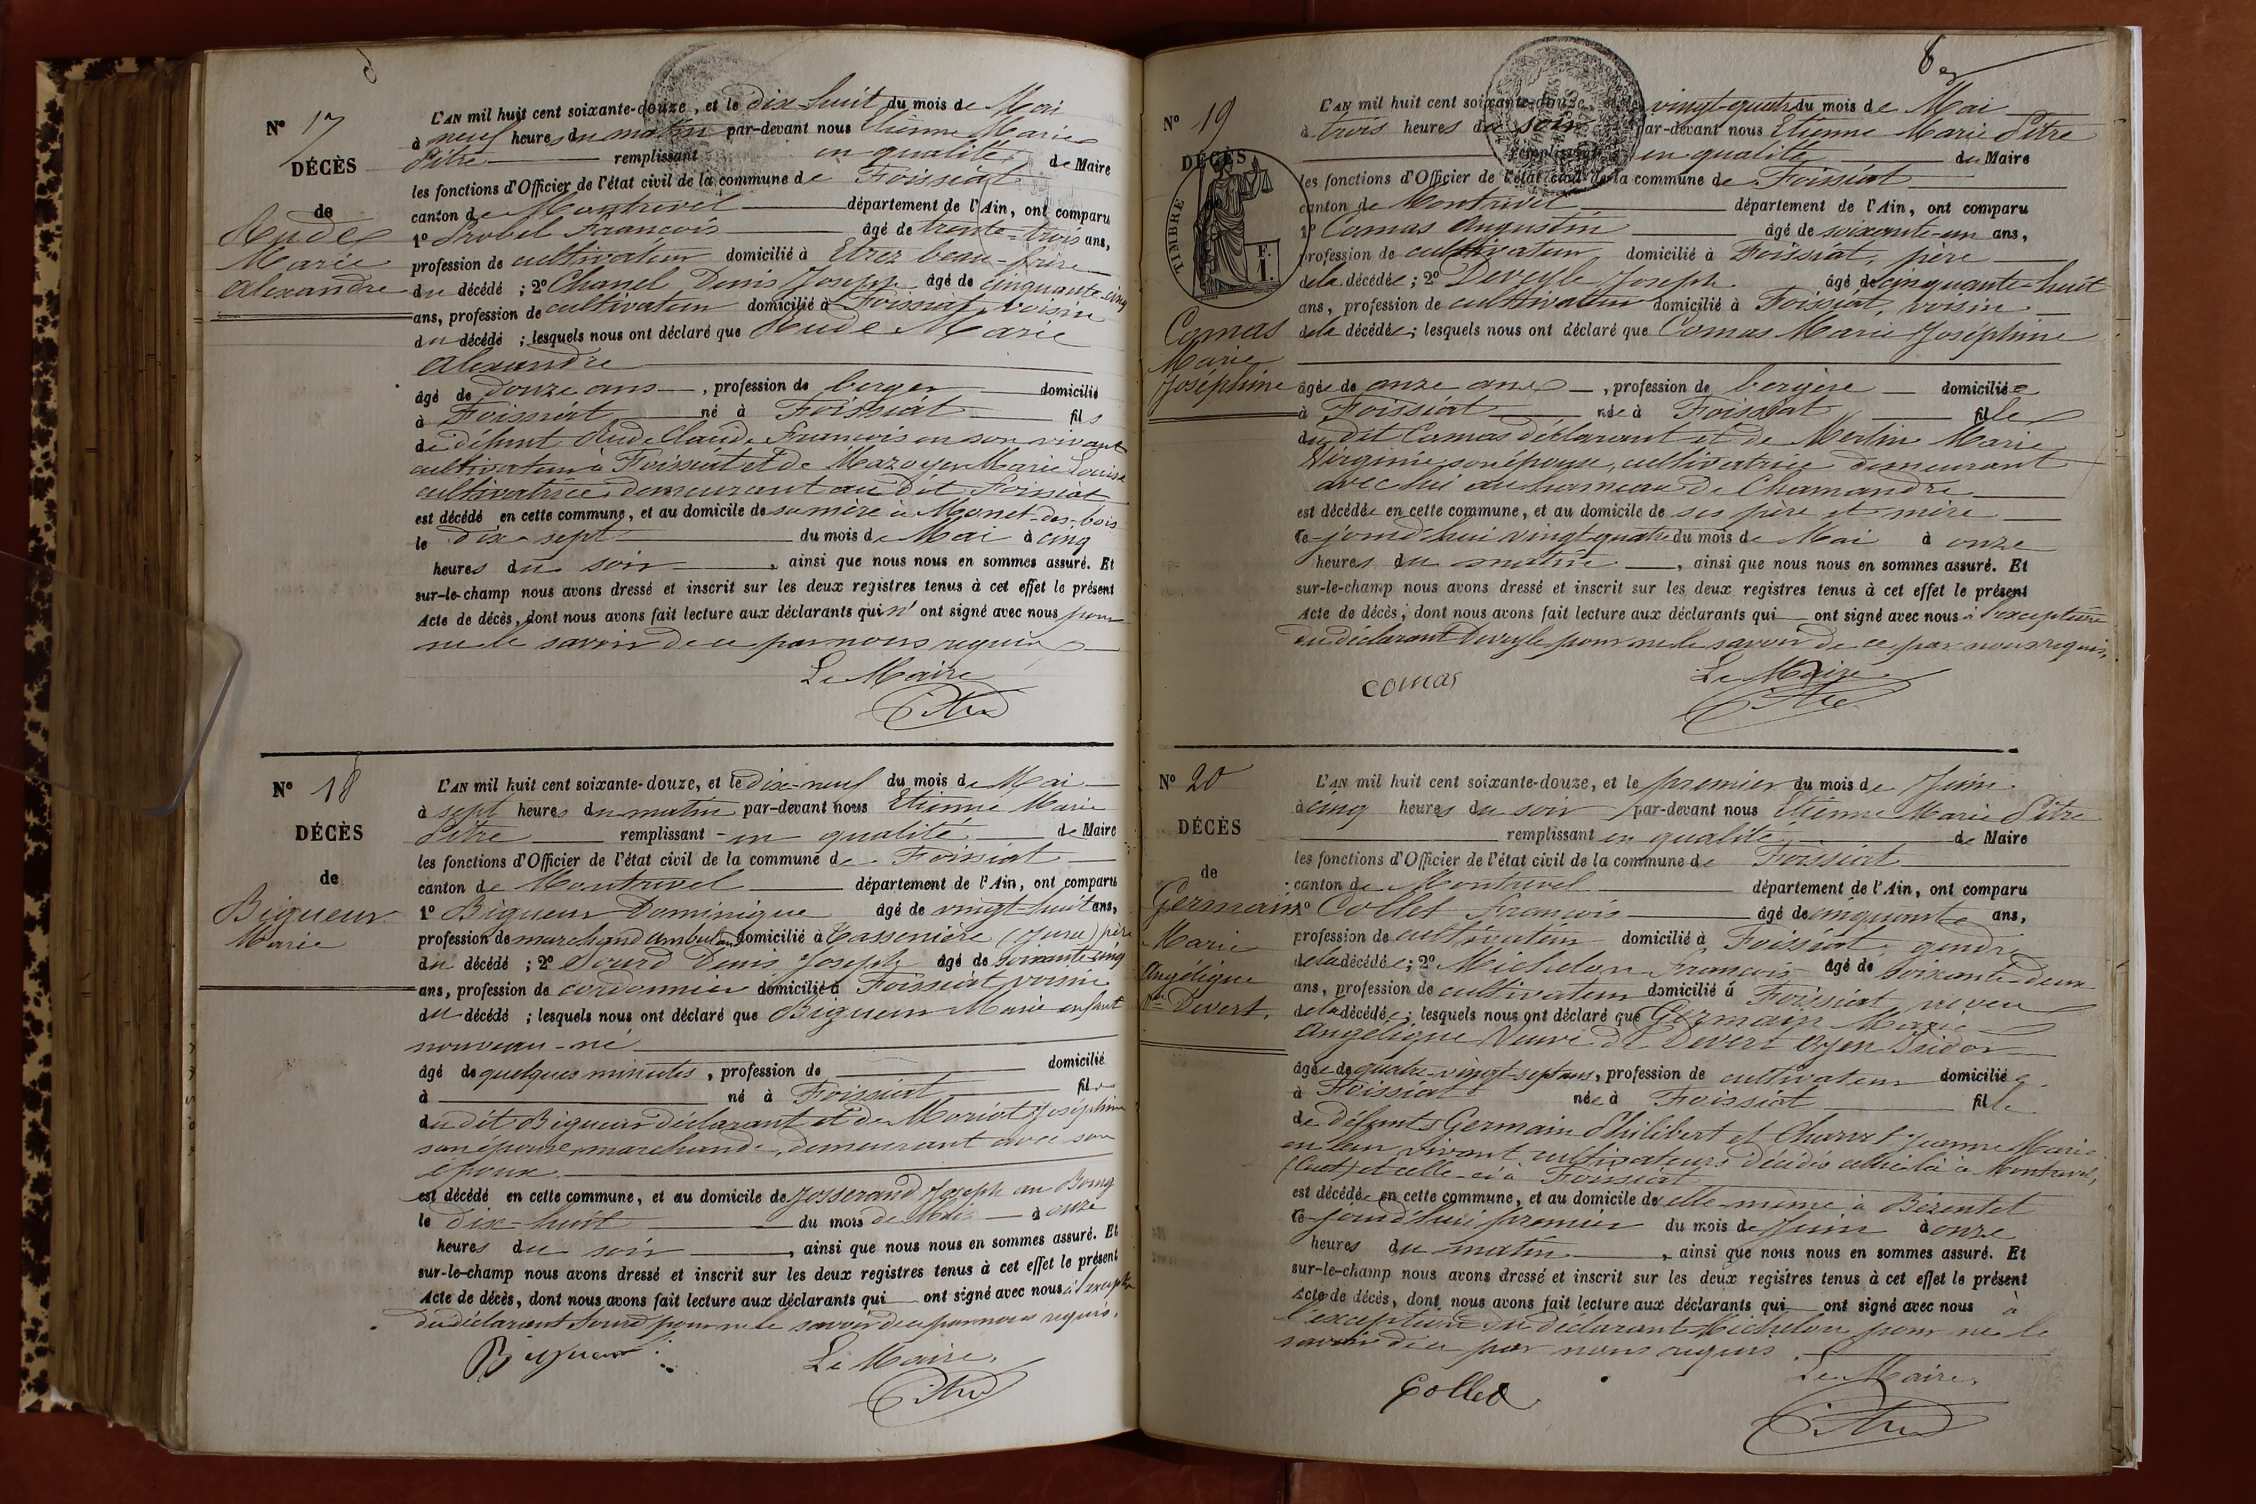 N° 17
DÉCÈS
de
Rude
Marie
Alexandre
L'AN mil huit cent soixante-douze, et le dix huit du mois de Mai
à neuf heures du matin par-devant nous Etienne Marie
Pitre remplissant en qualité de Maire
les fonctions d'Officier de l'état civil de la commune de Foissiat
canton de Montrevel département de l'Ain, ont comparu
1° Probel François âgé de trente-trois ans,
profession de cultivateur domicilié à Etrez beau-frère
du décédé ; 2° Chanel Denis Joseph âgé de cinquante-cinq
ans, profession de cultivateur domicilié à Foissiat, voisin
du décédé ; lesquels nous ont déclaré que Rude Marie
Alexandre
âgé de douze ans, profession de berger domicilié
à Foissiat né à Foissiat fils
de défunt Rude Claude François en son vivant
cultivateur à Foissiat et de Mazoyer Marie Louise
cultivatrice demeurant au dit Foissiat
est décédé en cette commune, et au domicile de sa mère à Monet-des-bois
le dix sept du mois de Mai à cinq
heures du soir, ainsi que nous nous en sommes assuré. Et
sur-le-champ nous avons dressé et inscrit sur les deux registres tenus à cet effet le présent
Acte de décès, dont nous avons fait lecture aux déclarants qui n' ont signé avec nous pour
ne le savoir de ce par nous requis
Le Maire
Pitre
N° 18
DÉCÈS
de
Bigueur
Marie
L'AN mil huit cent soixante-douze, et le dix-neuf du mois de Mai
à sept heures du matin par-devant nous Etienne Marie
Pitre remplissant en qualité de Maire
les fonctions d'Officier de l'état civil de la commune de Foissiat
canton de Montrevel département de l'Ain, ont comparu
1° Bigueur Dominique âgé de vingt-huit ans,
profession de marchand ambulant domicilié à Tassenière (Jura) père
du décédé ; 2° Sourd Denis Joseph âgé de soixante-cinq
ans, profession de cordonnier domicilié à Foissiat voisin
du décédé ; lesquels nous ont déclaré que Bigueur Marie enfant
nouveau-né
âgé de quelques minutes, profession de domicilié
à né à Foissiat fils
du dit Bigueur déclarant et de Moriat Joséphine
son épouse, marchande, demeurant avec son
époux
est décédé en cette commune, et au domicile de Josserand Joseph au Bourg
le dix-huit du mois de Mai à onze
heures du soir, ainsi que nous nous en sommes assuré. Et
sur-le-champ nous avons dressé et inscrit sur les deux registres tenus à cet effet le présent
Acte de décès, dont nous avons fait lecture aux déclarants qui ont signé avec nous à l'exception
du déclarant Sourd pour ne le savoir de ce par nous requis.
Bigueur
Le Maire,
Pitre
N° 19
DÉCÈS
TIMBRE
F.
1.
Comas
Marie
Joséphine
L'AN mil huit cent soixante-douze, et le vingt-quatre du mois de Mai
à trois heures du soir par-devant nous Etienne Marie Pitre
remplissant en qualité de Maire
les fonctions d'Officier de l'état civil de la commune de Foissiat
canton de Montrevel département de l'Ain, ont comparu
1° Comas Augustin âgé de soixante-un ans,
profession de cultivateur domicilié à Foissiat, père
de la décédée ; 2° Deveyle Joseph âgé de cinquante-huit
ans, profession de cultivateur domicilié à Foissiat, voisin
de la décédée ; lesquels nous ont déclaré que Comas Marie Joséphine
âgée de onze ans, profession de bergère domiciliée
à Foissiat née à Foissiat fille
du dit Comas déclarant et de Merlin Marie
Virginie son épouse, cultivatrice demeurant
avec lui au hameau de Chamandre
est décédée en cette commune, et au domicile de ses père et mère
ce jourd'hui vingt quatre du mois de Mai à onze
heures du matin, ainsi que nous nous en sommes assuré. Et
sur-le-champ nous avons dressé et inscrit sur les deux registres tenus à cet effet le présent
Acte de décès, dont nous avons fait lecture aux déclarants qui ont signé avec nous à l'exception
du déclarant Deveyle pour ne le savoir de ce par nous requis,
comas
Le Maire
Pitre
N° 20
DÉCÈS
de
Germain
Marie
Angélique
Vve Devert.
L'AN mil huit cent soixante-douze, et le premier du mois de Juin
à cinq heures du soir par-devant nous Etienne Marie Pitre
remplissant en qualité de Maire
les fonctions d'Officier de l'état civil de la commune de Foissiat
canton de Montrevel département de l'Ain, ont comparu
1° Collet François âgé de cinquante ans,
profession de cultivateur domicilié à Foissiat gendre
de la décédée ; 2° Michelon François âgé de soixante-deux
ans, profession de cultivateur domicilié à Foissiat neveu
de la décédée ; lesquels nous ont déclaré que Germain Marie
Angélique Veuve de Devert Oyen Isidor
âgée de quatre-vingt-sept ans, profession de cultivateur domiciliée
à Foissiat née à Foissiat fille
de défunts Germain Philibert et Charvet Jeanne Marie
en leur vivant cultivateurs décédés celui-là à Montrevel,
et celle-ci à Foissiat
est décédée en cette commune, et au domicile de elle-même à Bézentet
ce jourd'hui premier du mois de Juin à onze
heures du matin, ainsi que nous nous en sommes assuré. Et
sur-le-champ nous avons dressé et inscrit sur les deux registres tenus à cet effet le présent
Acte de décès, dont nous avons fait lecture aux déclarants qui ont signé avec nous à
l'exception du déclarant Michelon pour ne le
savoir de ce par nous requis
Collet
Le Maire,
Pitre